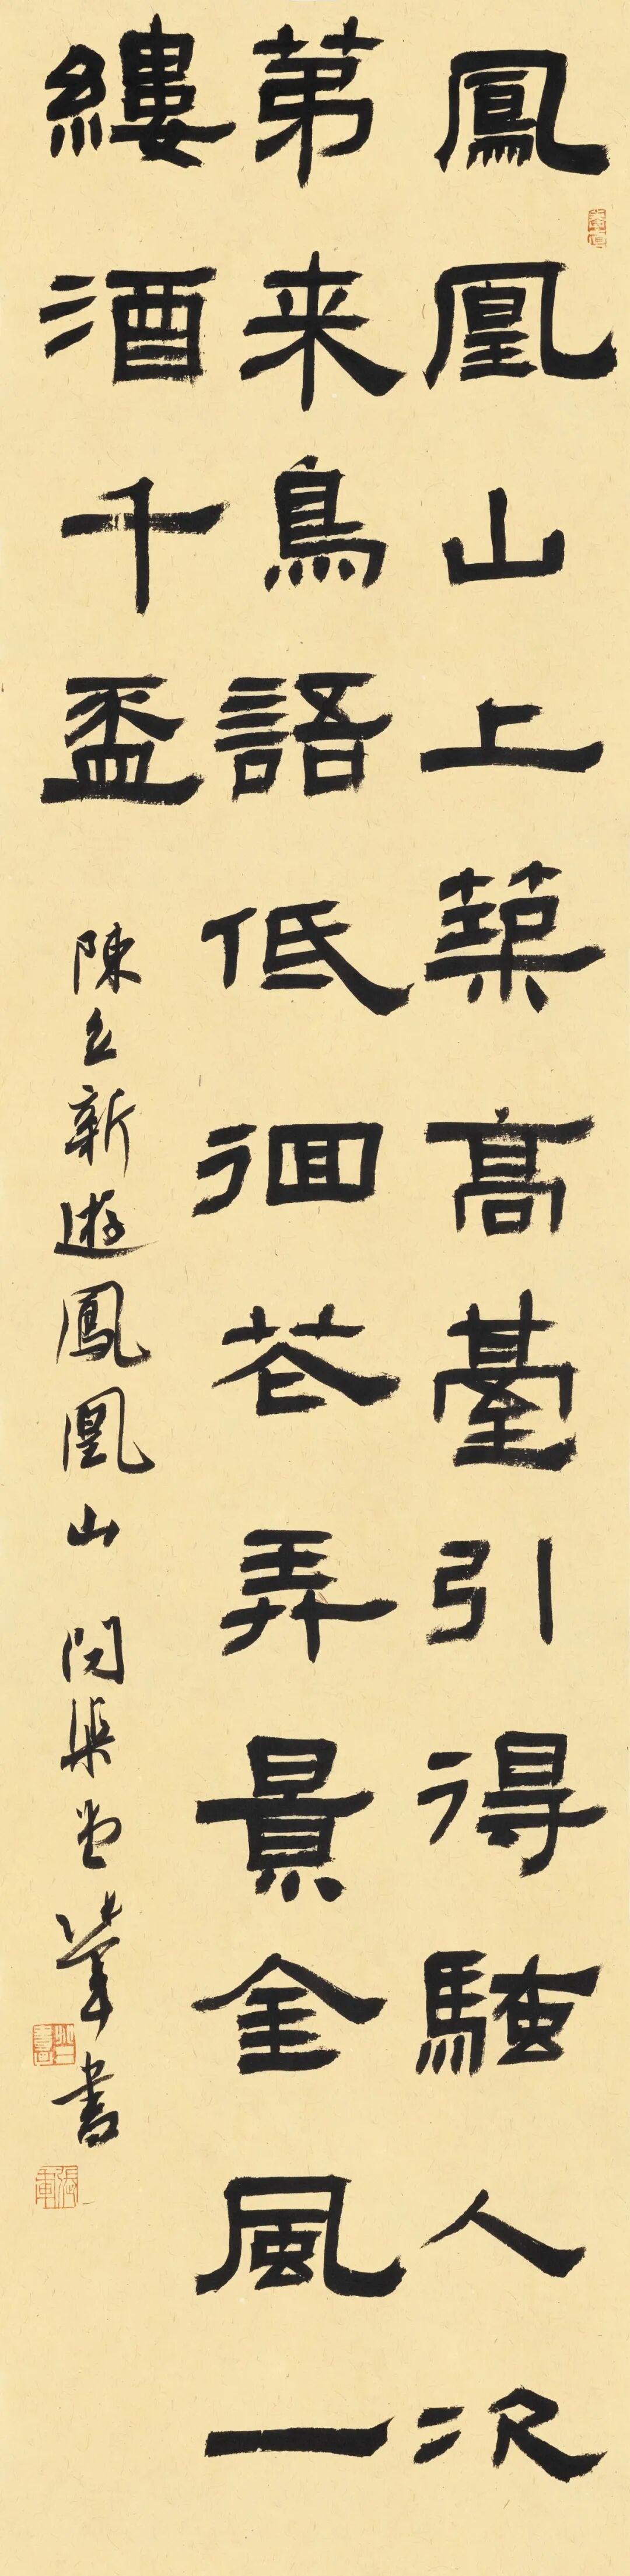 鳳凰山上築高臺引得騷人次
第来鳥語低徊花弄景金風一
縷酒千盃
陳立新遊鳳凰山 問渠堂 軍書
張軍